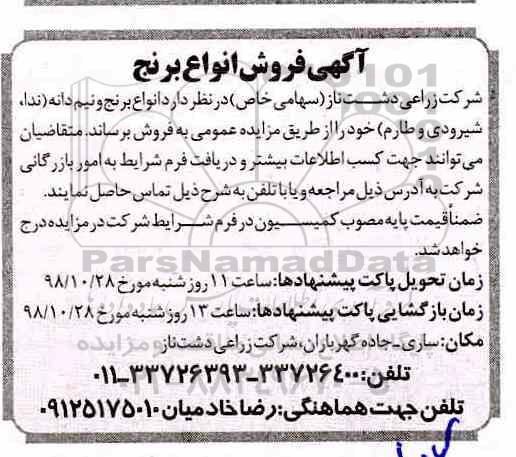 آگهی فروش انواع برنج
شرکت زراعی دشت ناز (سهامی خاص) در نظر دارد انواع برنج و نیم دانه (ندا،
شیرودی و طارم) خود را از طریق مزایده عمومی به فروش برساند. متقاضیان
می‌توانند جهت کسب اطلاعات بیشتر و دریافت فرم شرایط به امور بازرگانی
شرکت به آدرس ذیل مراجعه و یا با تلفن به شرح ذیل تماس حاصل نمایند.
ضمناً قیمت پایه مصوب کمیسیون در فرم شرایط شرکت در مزایده درج
خواهد شد.
ParsNamadData
زمان تحویل پاکت پیشنهادها: ساعت ۱۱ روز شنبه مورخ ۹۸/۱۰/۲۸
زمان بازگشایی پاکت پیشنهادها: ساعت ۱۳ روز شنبه مورخ ۹۸/۱۰/۲۸
مکان: ساری ـ جاده گهرباران، شرکت زراعی دشت ناز
تلفن: ۳۳۷۲۶۴۰۰-۳۳۷۲۶۳۹۳-۰۱۱
تلفن جهت هماهنگی: رضا خادمیان ۰۹۱۲۵۱۷۵۰۱۰